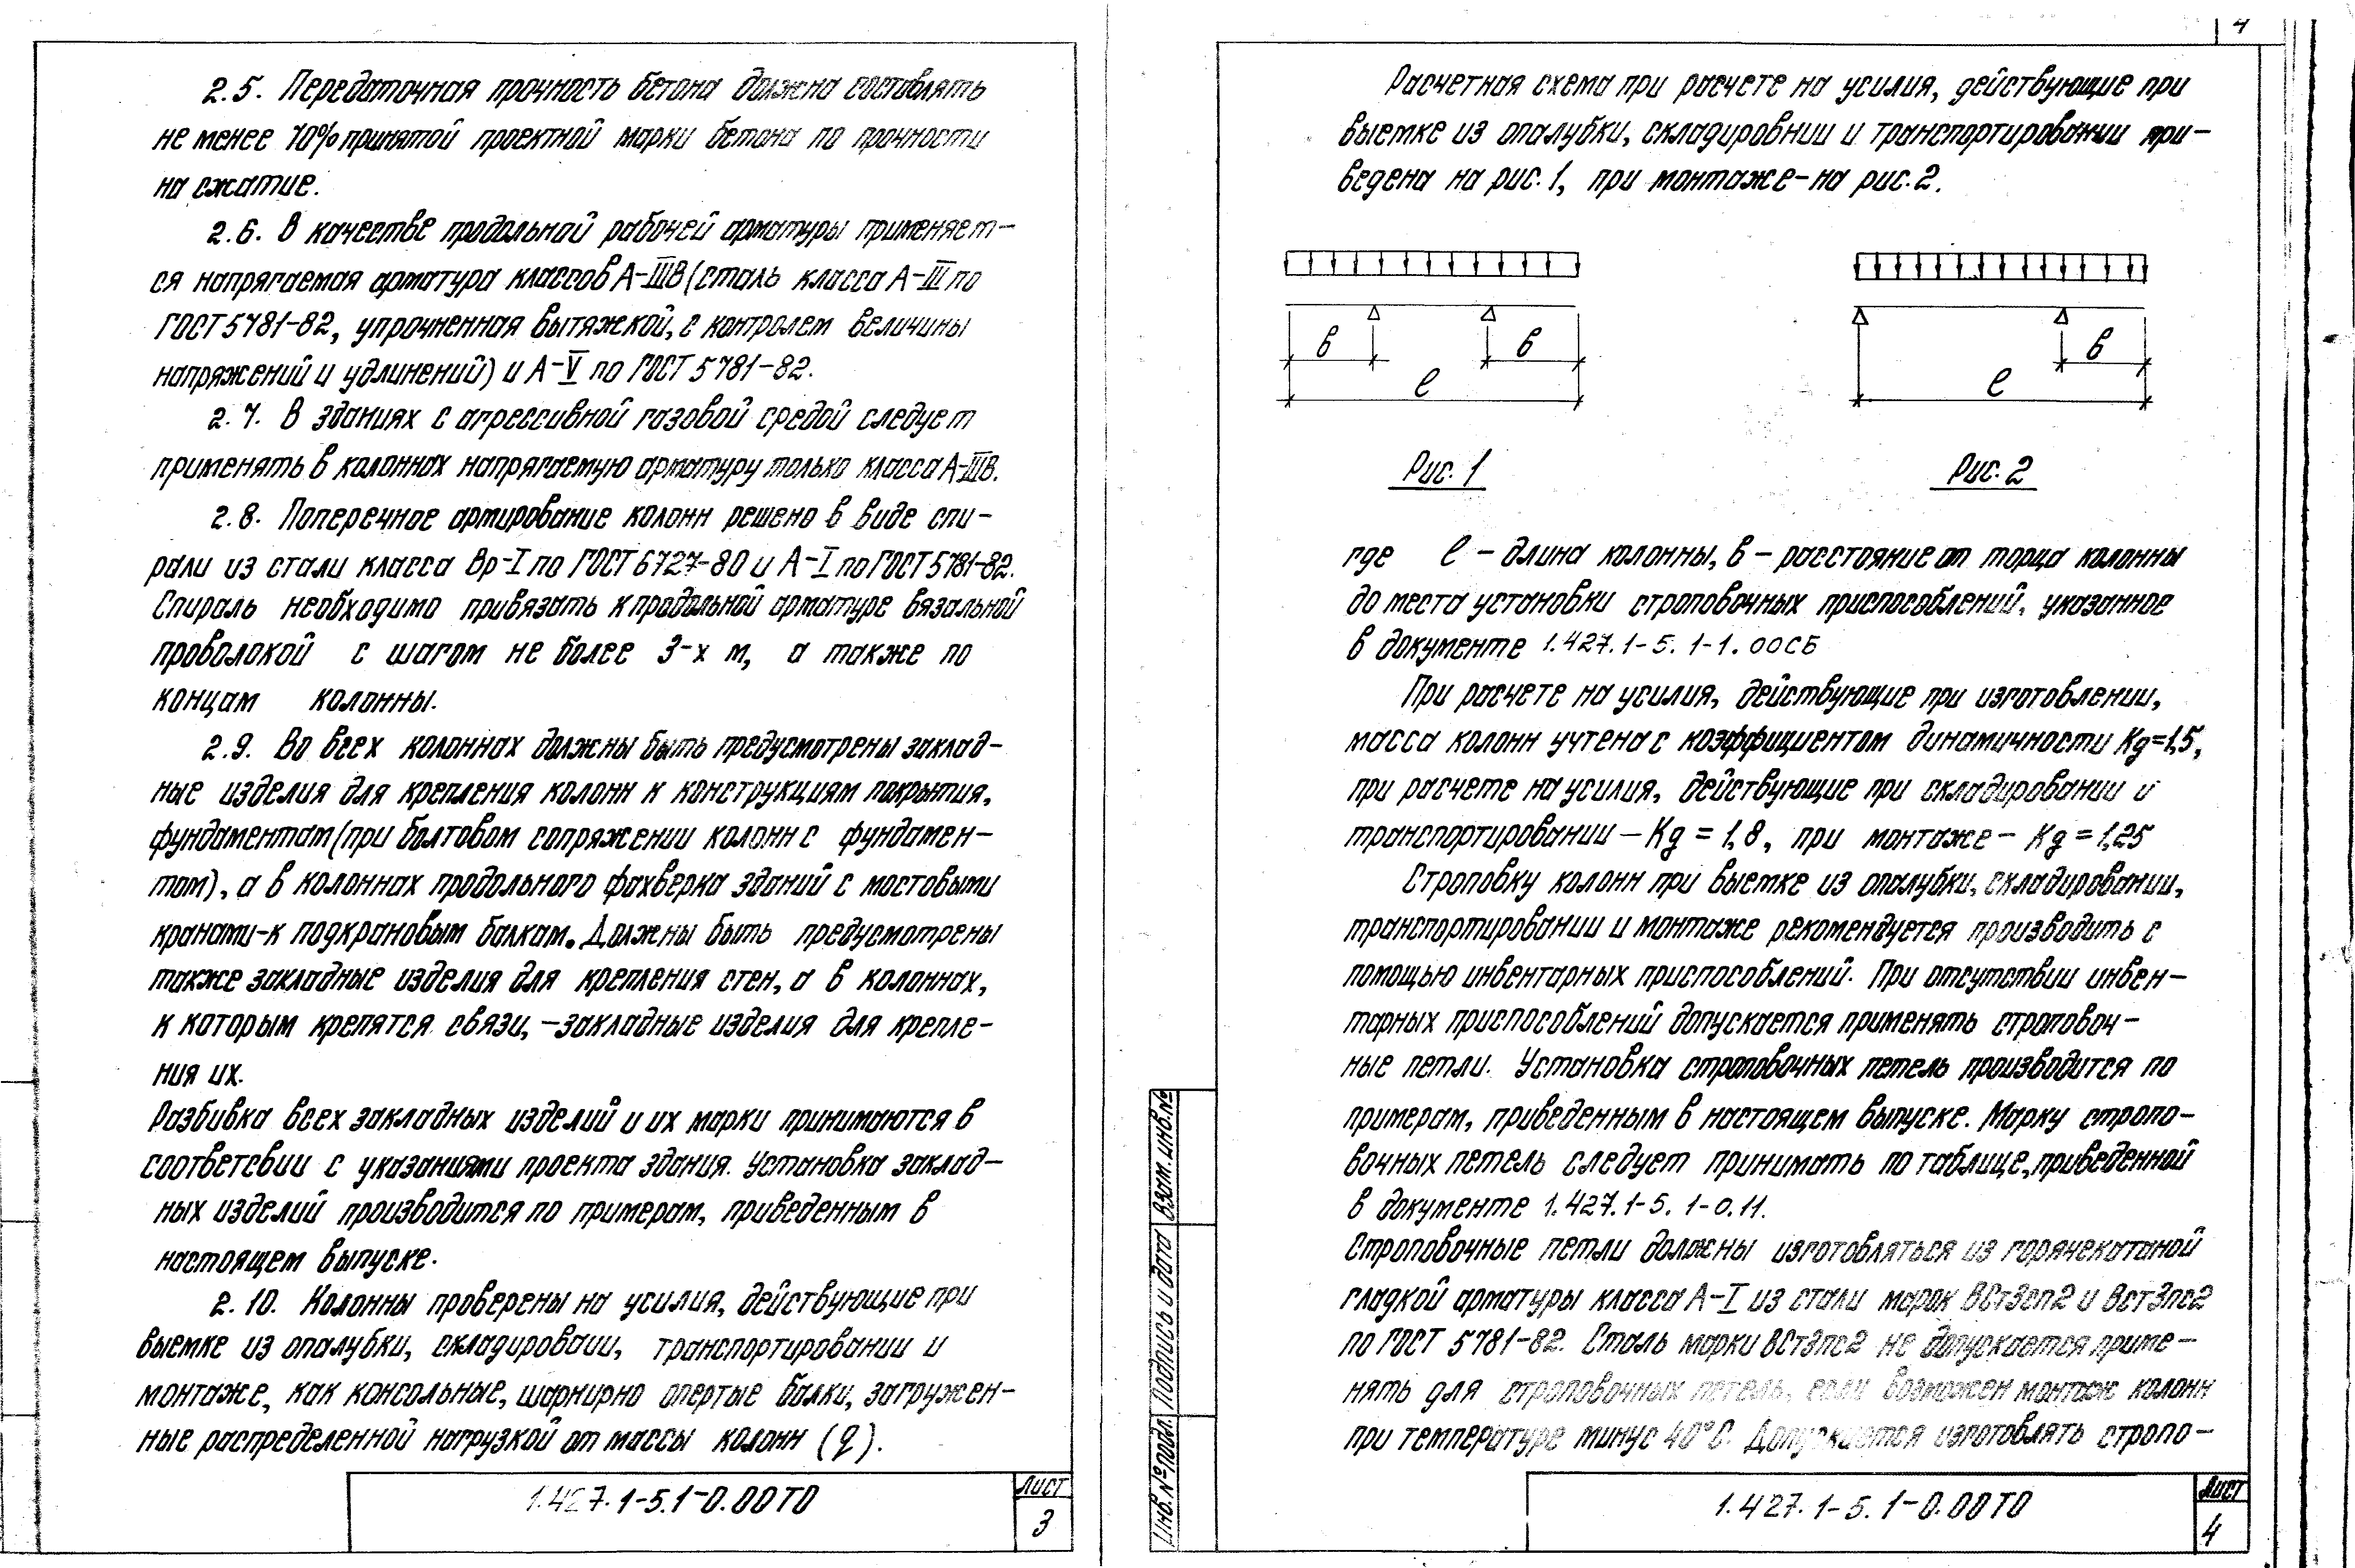 2.5. Передаточная прочность бетона должна составлять
не менее 70% принятой проектной марки бетона по прочности
на сжатие.
2.6. В качестве продольной рабочей арматуры применяет-
ся напрягаемая арматура классов А-IIIВ (сталь класса А-III по
ГОСТ 5781-82, упрочненная вытяжкой, с контролем величины
напряжений и удлинений) и А-V по ГОСТ 5781-82.
2.7. В зданиях с агрессивной газовой средой следует
применять в колоннах напрягаемую арматуру только класса А-IIIВ.
2.8. Поперечное армирование колонн решено в виде спи-
рали из стали класса Вр-I по ГОСТ 6727-80 и А-I по ГОСТ 5781-82.
Спираль необходимо привязать к продольной арматуре вязальной
проволокой с шагом не более 3-х м, а также по
концам колонны.
2.9. Во всех колоннах должны быть предусмотрены заклад-
ные изделия для крепления колонн к конструкциям покрытия,
фундаментам (при болтовом сопряжении колонн с фундамен-
том), а в колоннах продольного фахверка зданий с мостовыми
кранами-к подкрановым балкам. Должны быть предусмотрены
также закладные изделия для крепления стен, а в колоннах,
к которым крепятся связи, -закладные изделия для крепле-
ния их.
Разбивка всех закладных изделий и их марки принимаются в
соответсвии с указаниями проекта здания. Установка заклад-
ных изделий производится по примерам, приведенным в
настоящем выпуске.
2.10. Колонны проверены на усилия, действующие при
выемке из опалубки, складироваии, транспортировании и
монтаже, как консольные, шарнирно опертые балки, загружен-
ные распределенной нагрузкой от массы колонн (q).
1.427.1-5.1-0.00ТО
Лист
3
4
Расчетная схема при расчете на усилия, действующие при
выемке из опалубки, складировнии и транспортировании при-
ведена на рис. 1, при монтаже-на рис. 2.
в
в
ℓ
в
ℓ
Рис. 1
Рис. 2
где ℓ - длина колонны, в - расстояние от торца колонны
до места установки строповочных приспособлений, указанное
в документе 1.427.1-5.1-1.00СБ
При расчете на усилия, действующие при изготовлении,
масса колонн учтена с коэффициентом динамичности Кд=1,5,
при расчете на усилия, действующие при складировании и
транспортировании - Кд = 1,8, при монтаже - Кд = 1,25
Строповку колонн при выемке из опалубки, складировании,
транспортировании и монтаже рекомендуется производить с
помощью инвентарных приспособлений. При отсутствии инвен-
тарных приспособлений допускается применять строповоч-
ные петли. Установка строповочных петель производится по
примерам, приведенным в настоящем выпуске. Марку стропо-
вочных петель следует принимать по таблице, приведенной
в документе 1.427.1-5.1-0.11.
Строповочные петли должны изготовляться из горячекатаной
гладкой арматуры класса А-I из стали марок ВСт3сп2 и ВСт3пс2
по ГОСТ 5781-82. Сталь марки ВСт3пс2 не допускается приме-
нять для строповочных петель, если возможен монтаж колонн
при температуре минус 40°С. Допускается изготовлять стропо-
Инв. № подл.
Подпись и дата
Взам. инв. №
1.427.1-5.1-0.00ТО
Лист
4